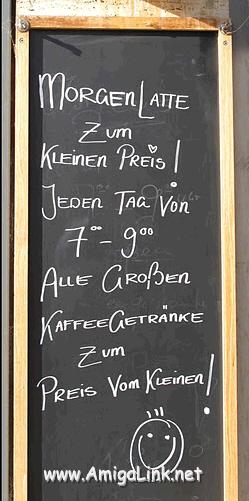 MORGENLATTE
ZUM
KLEINEN PREIS!
JEDEN TAG VON
7⁰⁰ - 9⁰⁰
ALLE GROßEN
KAFFEEGETRÄNKE
ZUM
PREIS VOM KLEINEN!
www.AmigaLink.net